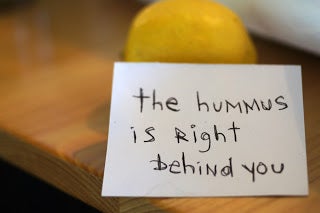 the HUMMUS
is Right
behind you